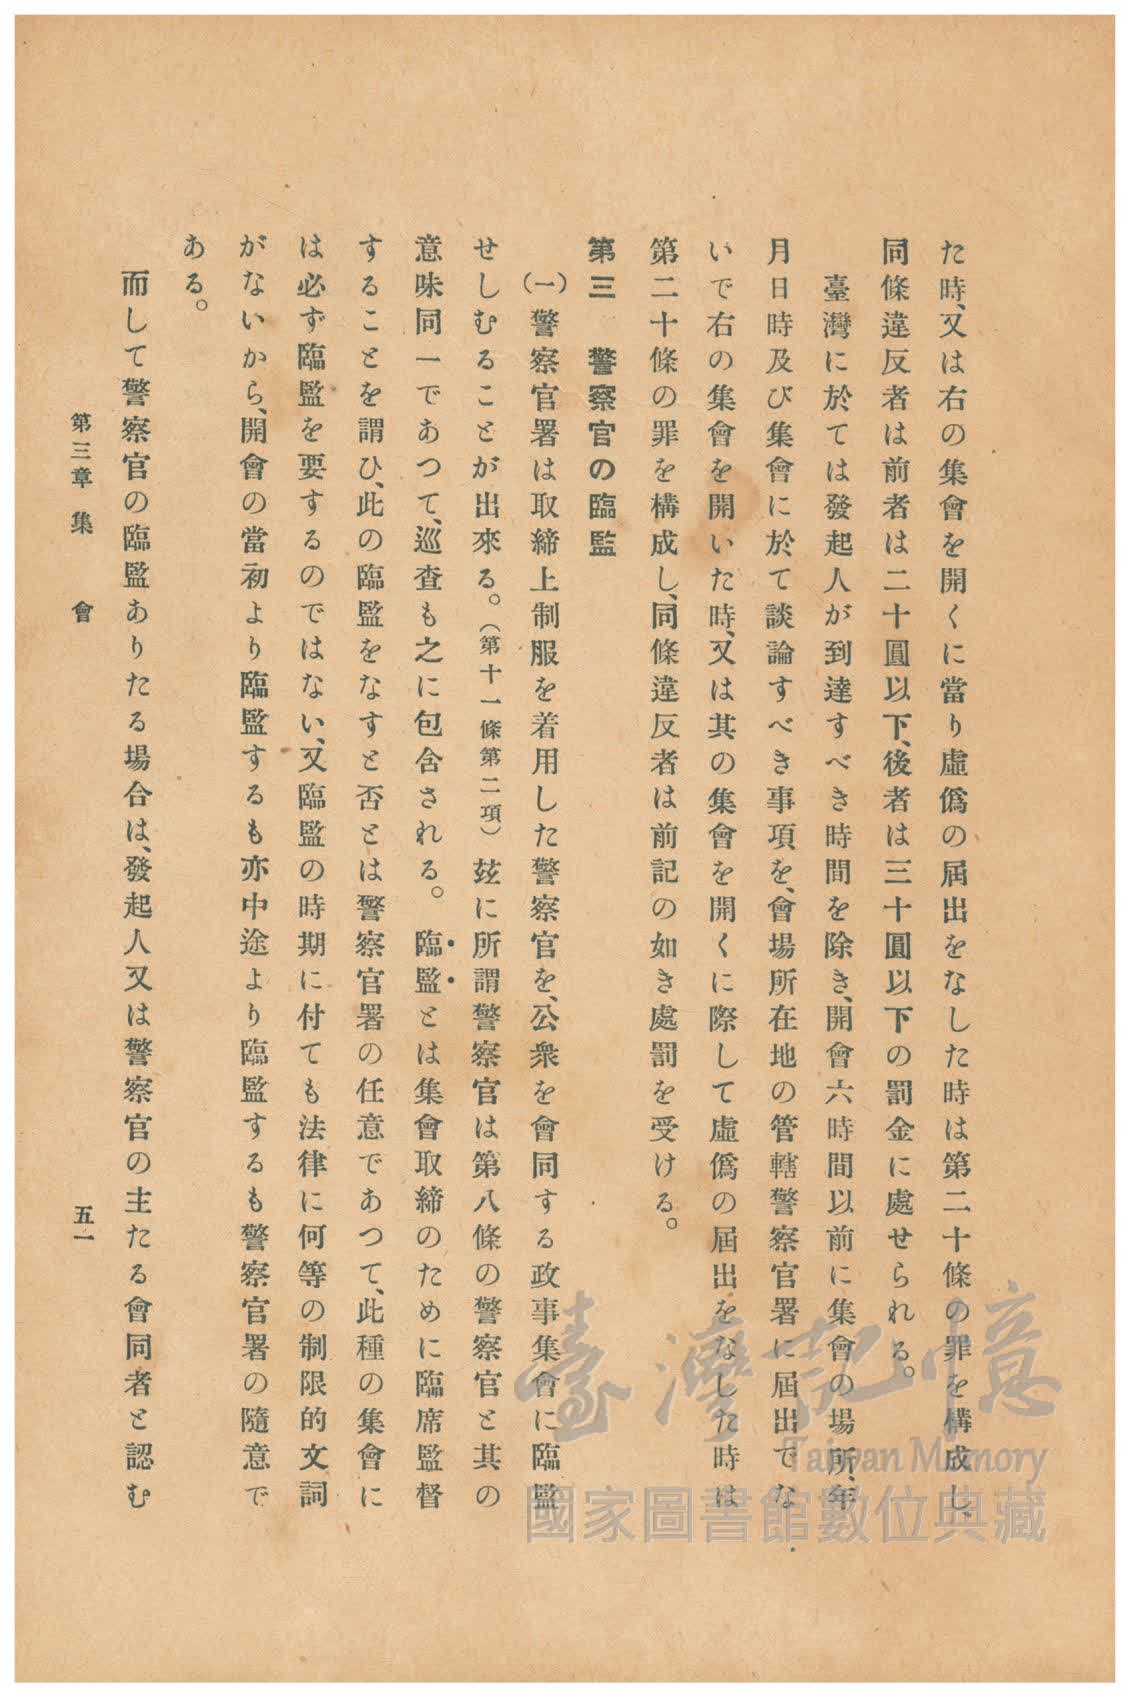 た時、又は右の集會を開くに當り虛僞の屆出をなした時は第二十條の罪を構成し、
同條違反者は前者は二十圓以下、後者は三十圓以下の罰金に處せられる。
臺灣に於ては發起人が到達すべき時間を除き、開會六時間以前に集會の場所、年
月日時及び集會に於て談論すべき事項を、會場所在地の管轄警察官署に屆出でな
いで右の集會を開いた時、又は其の集會を開くに際して虛僞の屆出をなした時は
第二十條の罪を構成し、同條違反者は前記の如き處罰を受ける。
第三 警察官の臨監
(一)警察官署は取締上制服を着用した警察官を、公衆を會同する政事集會に臨監
せしむることが出來る。(第十一條第二項)玆に所謂警察官は第八條の警察官と其の
意味同一であつて、巡查も之に包含される。 臨監とは集會取締のために臨席監督
することを謂ひ、此の臨監をなすと否とは警察官署の任意であつて、此種の集會に
は必ず臨監を要するのではない、又臨監の時期に付ても法律に何等の制限的文詞
がないから、開會の當初より臨監するも亦中途より臨監するも警察官署の隨意で
ある。
而して警察官の臨監ありたる場合は、發起人又は警察官の主たる會同者と認む
第三章 集 會
五一
臺灣記憶
Taiwan Memory
國家圖書館數位典藏